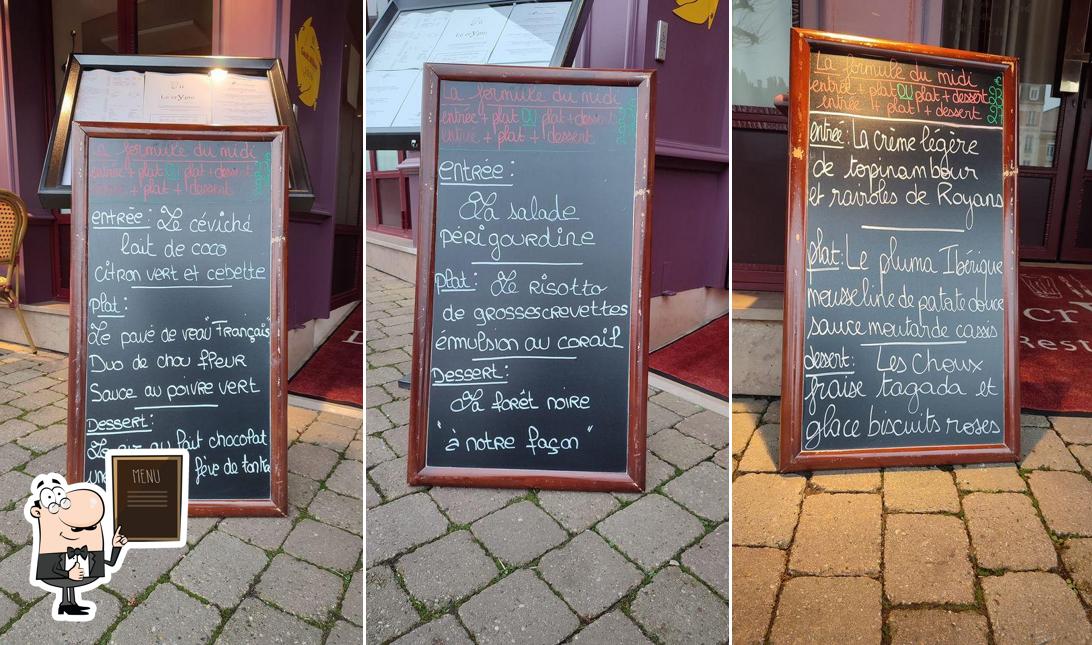 La formule du midi
entrée + plat OU plat + dessert
entrée + plat + dessert
entrée: Le céviché
lait de coco
citron vert et cebette
Plat:
Le pavé de veau "Français"
Duo de chou ffeur
Sauce au poivre vert
Dessert:
au lait chocolat
fève de tonka
MENU
La formule du midi
entrée + plat OU plat + dessert
entrée + plat + dessert
entrée:
La salade
périgourdine
Plat: Le Risotto
de grosses crevettes
émulsion au corail
Dessert:
La forêt noire
"à notre façon"
La formule du midi
entrée + plat OU plat + dessert
entrée + plat + dessert
entrée: La crème légère
de topinambour
et ravioles de Royans
plat: Le pluma Ibérique
mousseline de patate douce
sauce moutarde cassis
dessert: Les Choux
fraise tagada et
glace biscuits roses